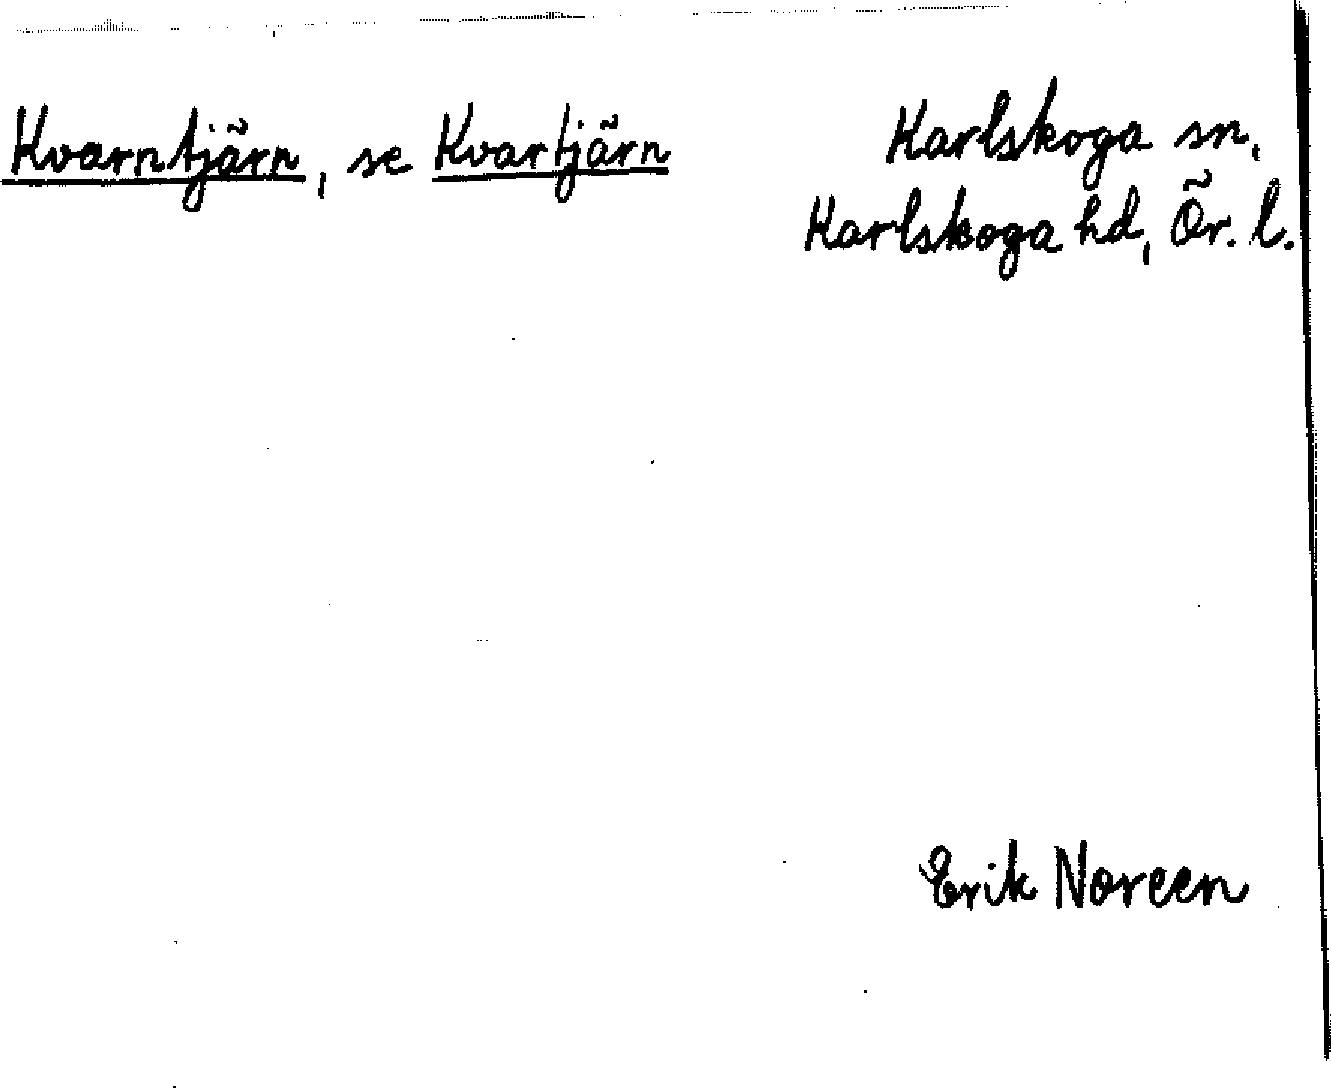 Kvarntjärn, se Kvartjärn
Karlskoga sn,
Karlskoga hd, Ör. l.
Erik Noreen